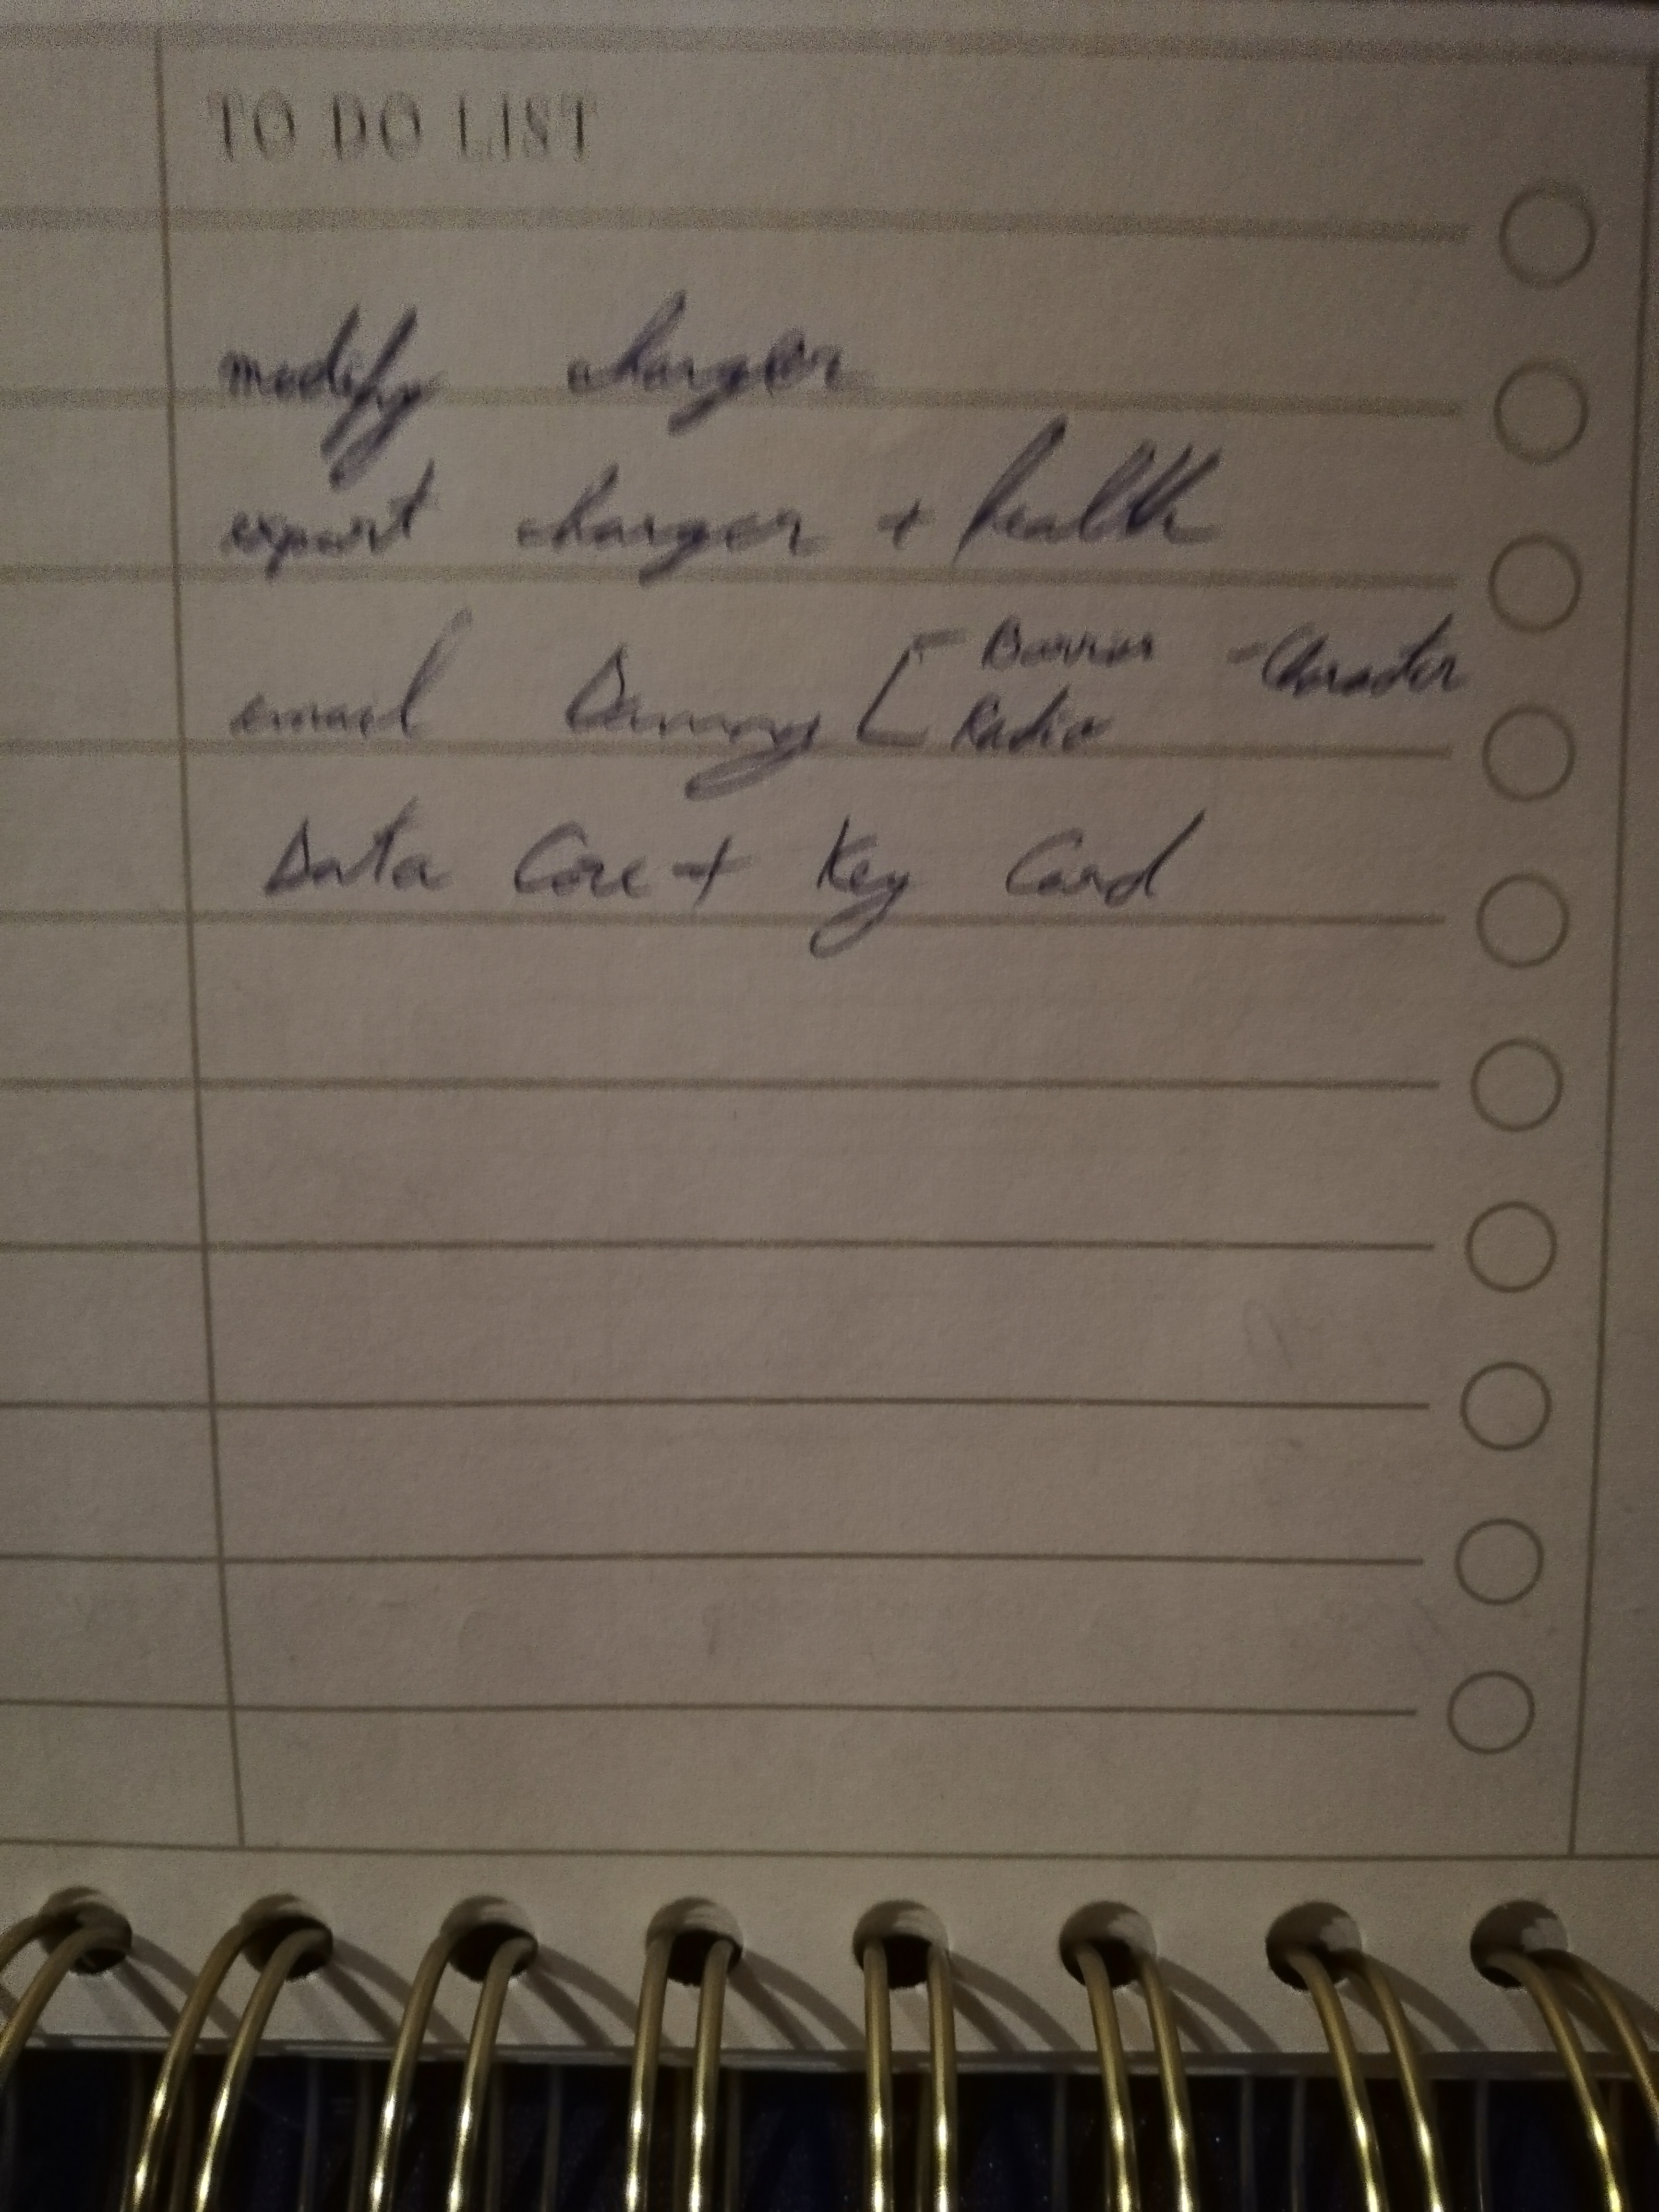 TO DO LIST
modify charger
export charger + health
email Danny [ - Barrier - Character
Radio
Data Core + Key Card